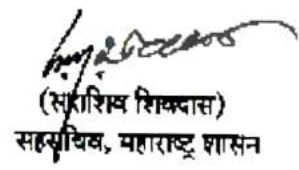 (सदाशिव शिवदास)
सहसचिव, महाराष्ट्र शासन